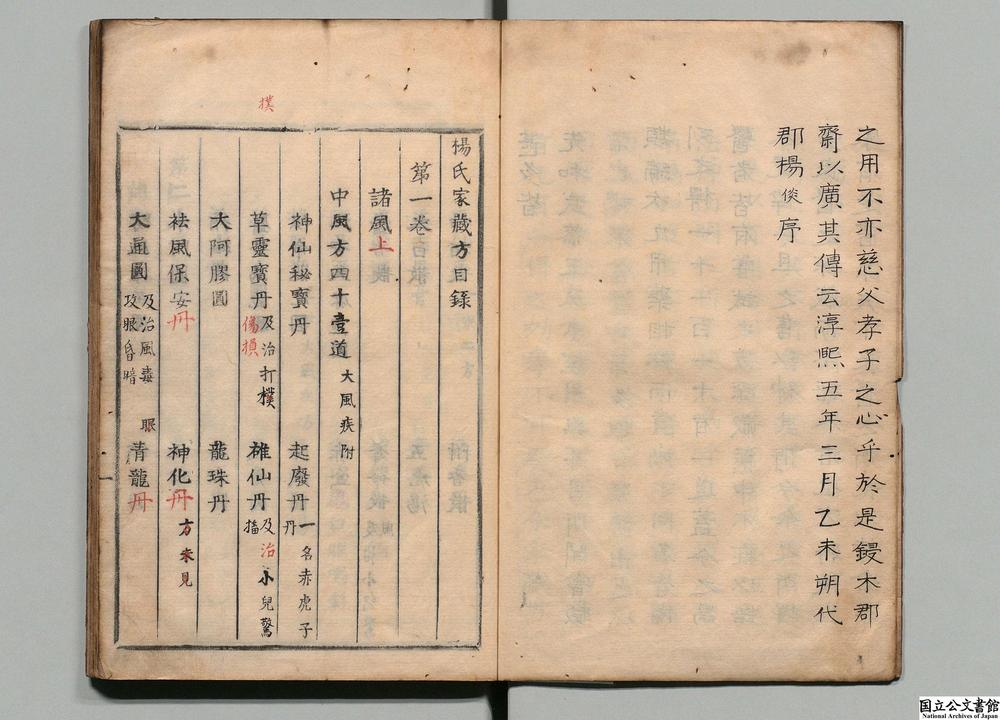 之用不亦慈父孝子之心乎於是鋟木郡
齋以廣其傳云淳熙五年三月乙未朔代
郡楊倓序
楊氏家藏方目錄
第一卷
諸風上
中風方四十壹道 大風疾附
神仙秘寳丹 起廢丹 一名赤虎子丹
草靈寳丹 及治打撲傷損 碓仙丹 及治小兒驚搐
大阿膠圓 龍珠丹
袪風保安丹 神化丹 方未見
大通圓 及治風毒攻眼昏暗 青龍丹
眼
撲
国立公文書館
National Archives of Japan